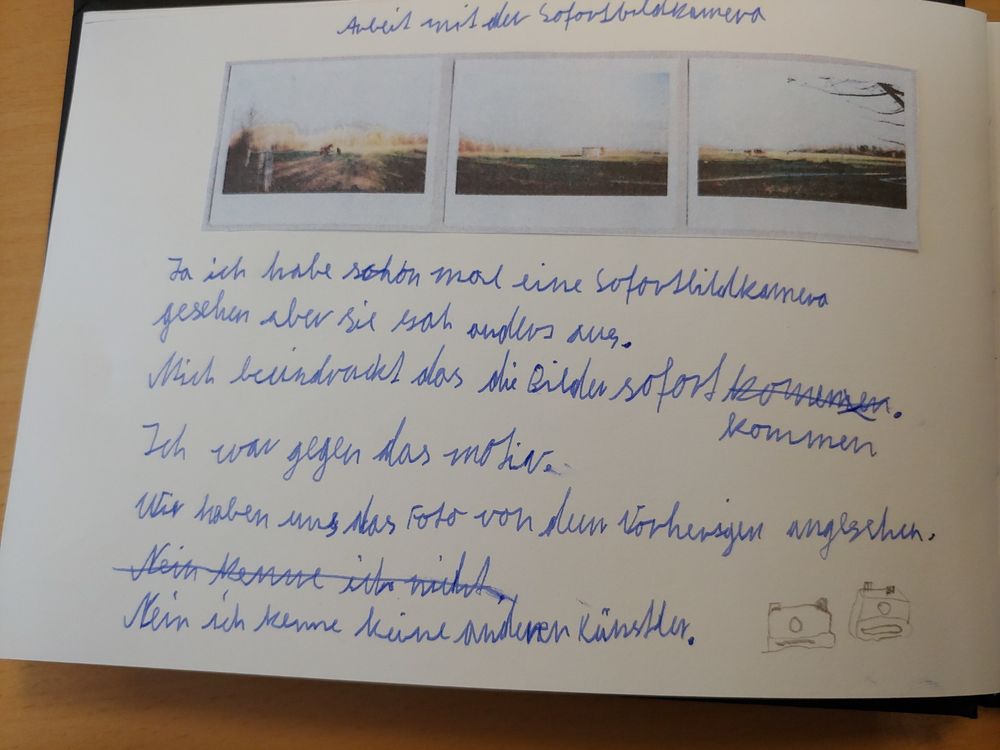 Arbeit mit der Sofortbildkamera
Ja ich habe schon mal eine Sofortbildkamera
gesehen aber sie sah anders aus.
Mich beindruckt das die Bilder sofort komemen.
kommen
Ich war gegen das motiv.
Wir haben uns das Foto von dem Vorherigen angesehen.
Nein kenne ich nicht.
Nein ich kenne keine anderen Künstler.